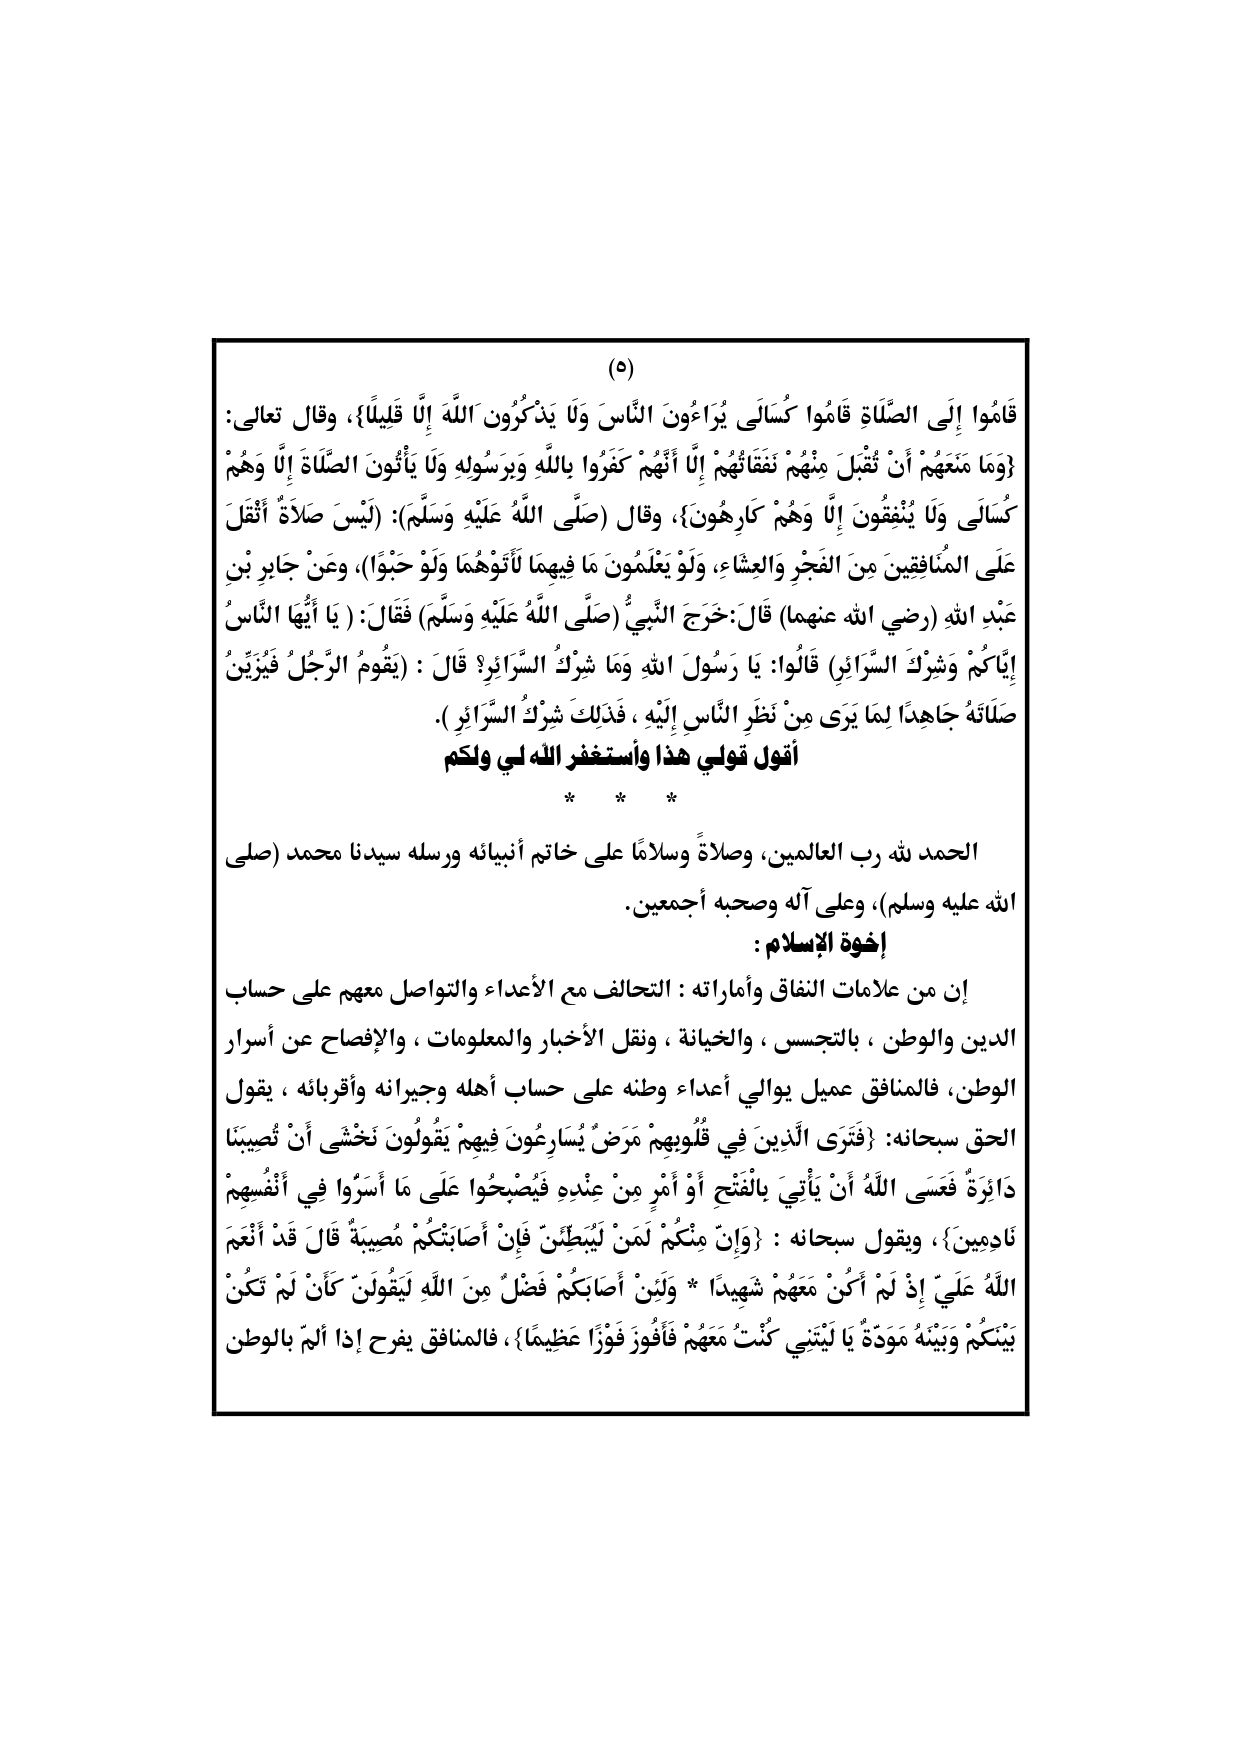 (٥)
قَامُوا إِلَى الصَّلَاةِ قَامُوا كُسَالَى يُرَاءُونَ النَّاسَ وَلَا يَذْكُرُون َاللَّهَ إِلَّا قَلِيلًا}، وقال تعالى:
{وَمَا مَنَعَهُمْ أَنْ تُقْبَلَ مِنْهُمْ نَفَقَاتُهُمْ إِلَّا أَنَّهُمْ كَفَرُوا بِاللَّهِ وَبِرَسُولِهِ وَلَا يَأْتُونَ الصَّلَاةَ إِلَّا وَهُمْ
كُسَالَى وَلَا يُنْفِقُونَ إِلَّا وَهُمْ كَارِهُونَ}، وقال (صَلَّى اللَّهُ عَلَيْهِ وَسَلَّمَ): (لَيْسَ صَلاَةٌ أَثْقَلَ
عَلَى المُنَافِقِينَ مِنَ الفَجْرِ وَالعِشَاءِ، وَلَوْ يَعْلَمُونَ مَا فِيهِمَا لَأَتَوْهُمَا وَلَوْ حَبْوًا)، وعَنْ جَابِرِ بْنِ
عَبْدِ اللهِ (رضي الله عنهما) قَالَ:خَرَجَ النَّبِيُّ (صَلَّى اللَّهُ عَلَيْهِ وَسَلَّمَ) فَقَالَ: ( يَا أَيُّهَا النَّاسُ
إِيَّاكُمْ وَشِرْكَ السَّرَائِرِ) قَالُوا: يَا رَسُولَ اللهِ وَمَا شِرْكُ السَّرَائِرِ؟ قَالَ : (يَقُومُ الرَّجُلُ فَيُزَيِّنُ
صَلَاتَهُ جَاهِدًا لِمَا يَرَى مِنْ نَظَرِ النَّاسِ إِلَيْهِ ، فَذَلِكَ شِرْكُ السَّرَائِرِ ).
أقول قولي هذا وأستغفر الله لي ولكم
* * *
الحمد لله رب العالمين، وصلاةً وسلامًا على خاتم أنبيائه ورسله سيدنا محمد (صلى
الله عليه وسلم)، وعلى آله وصحبه أجمعين.
إخوة الإسلام :
إن من علامات النفاق وأماراته : التحالف مع الأعداء والتواصل معهم على حساب
الدين والوطن ، بالتجسس ، والخيانة ، ونقل الأخبار والمعلومات ، والإفصاح عن أسرار
الوطن، فالمنافق عميل يوالي أعداء وطنه على حساب أهله وجيرانه وأقربائه ، يقول
الحق سبحانه: {فَتَرَى الَّذِينَ فِي قُلُوبِهِمْ مَرَضٌ يُسَارِعُونَ فِيهِمْ يَقُولُونَ نَخْشَى أَنْ تُصِيبَنَا
دَائِرَةٌ فَعَسَى اللَّهُ أَنْ يَأْتِيَ بِالْفَتْحِ أَوْ أَمْرٍ مِنْ عِنْدِهِ فَيُصْبِحُوا عَلَى مَا أَسَرُّوا فِي أَنْفُسِهِمْ
نَادِمِينَ}، ويقول سبحانه : {وَإِنّ مِنْكُمْ لَمَنْ لَيُبَطِّئَنّ فَإِنْ أَصَابَتْكُمْ مُصِيبَةٌ قَالَ قَدْ أَنْعَمَ
اللَّهُ عَلَيّ إِذْ لَمْ أَكُنْ مَعَهُمْ شَهِيدًا * وَلَئِنْ أَصَابَكُمْ فَضْلٌ مِنَ اللَّهِ لَيَقُولَنّ كَأَنْ لَمْ تَكُنْ
بَيْنَكُمْ وَبَيْنَهُ مَوَدّةٌ يَا لَيْتَنِي كُنْتُ مَعَهُمْ فَأَفُوزَ فَوْزًا عَظِيمًا}، فالمنافق يفرح إذا ألمّ بالوطن